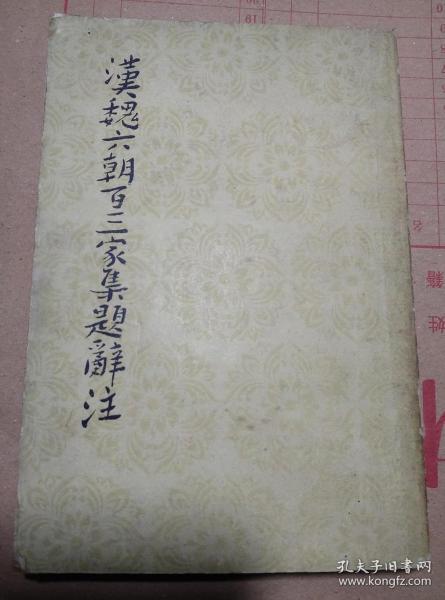 漢魏六朝百三家集題辭注
名
籍
姓
孔夫子旧书网
www.kongfz.com